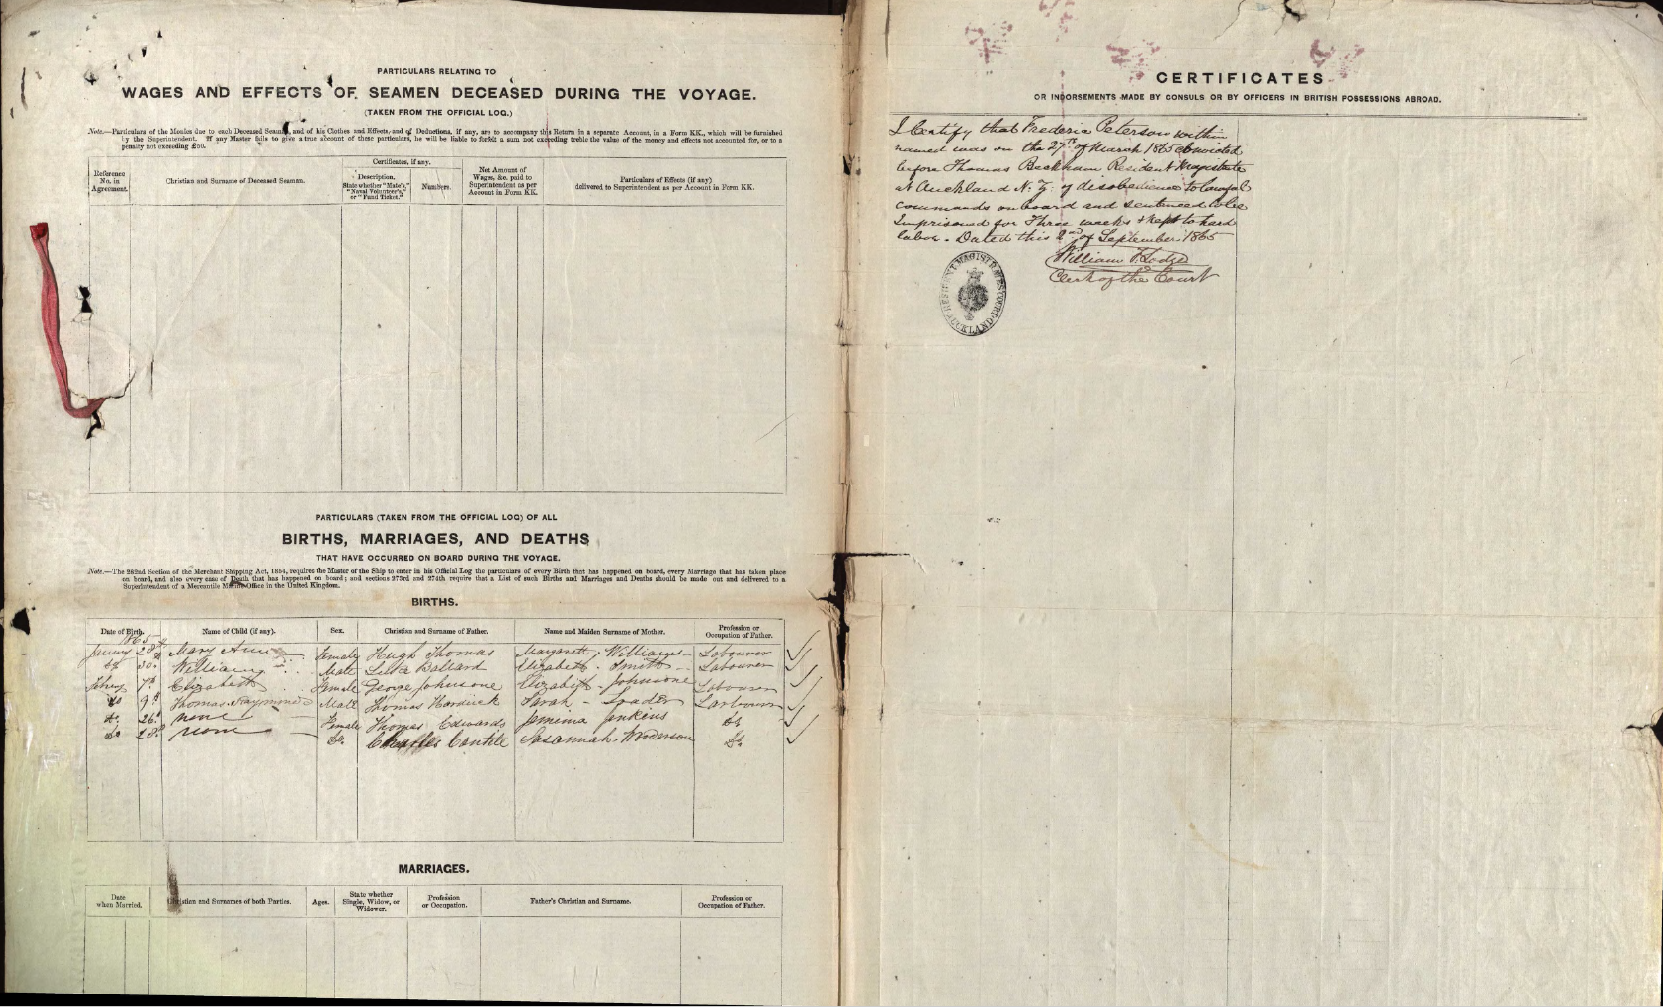 PARTICULARS RELATING TO
WAGES AND EFFECTS OF SEAMEN DECEASED DURING THE VOYAGE.
(TAKEN FROM THE OFFICIAL LOG.)
Note.—Particulars of the Monies due to each Deceased Seaman, and of his Clothes and Effects, and of Deductions, if any, are to accompany this Return in a separate Account, in a Form KK., which will be furnished
by the Superintendent. If any Master fails to give a true account of these particulars, he will be liable to forfeit a sum not exceeding treble the value of the money and effects not accounted for, or to a
penalty not exceeding £50.
Reference No. in Agreement.
Christian and Surname of Deceased Seaman.
Certificates, if any.
Description. State whether "Mate's," "Naval Volunteer's," or "Fund Ticket."
Numbers.
Net Amount of Wages, &c. paid to Superintendent as per Account in Form KK.
Particulars of Effects (if any) delivered to Superintendent as per Account in Form KK.
PARTICULARS (TAKEN FROM THE OFFICIAL LOG) OF ALL
BIRTHS, MARRIAGES, AND DEATHS
THAT HAVE OCCURRED ON BOARD DURING THE VOYAGE.
Note.—The 282nd Section of the Merchant Shipping Act, 1854, requires the Master of the Ship to enter in his Official Log the particulars of every Birth that has happened on board, every Marriage that has taken place
on board, and also every case of Death that has happened on board; and sections 273rd and 274th require that a List of such Births and Marriages and Deaths should be made out and delivered to a
Superintendent of a Mercantile Marine Office in the United Kingdom.
BIRTHS.
Date of Birth. Name of Child (if any). Sex. Christian and Surname of Father. Name and Maiden Surname of Mother. Profession or Occupation of Father.
1865
January 28th Mary Ann Female Hugh Thomas Margarett Williams Labourer
Do 30. William Male Ballard Elizabeth Smith Labourer
Febry 7th Elizabeth Female George Johnsone Elizabeth Johnsone Labourer
Do 9th Thomas Male Thomas Hardwick Sarah Larbourer
Do 26th none Female Thomas Edwards Jemima Jenkins Do
Do 28th none Do. Charles Cantile Susannah Do.
MARRIAGES.
Date when Married. Christian and Surnames of both Parties. Ages. State whether Single, Widow, or Widower. Profession or Occupation. Father's Christian and Surname. Profession or Occupation of Father.
CERTIFICATES
OR INDORSEMENTS MADE BY CONSULS OR BY OFFICERS IN BRITISH POSSESSIONS ABROAD.
I Certify that Frederic Peterson within
named was on the 27th of March 1865 convicted
before Thomas Beckham Resident Magistrate
at Auckland N.Z. of disobedience to lawful
commands on board and sentenced to be
Imprisoned for Three weeks & kept to hard
labor. Dated this 2nd of September 1865
William F. Lodge
Clerk of the Court
RESIDENT MAGISTRATES COURT
AUCKLAND